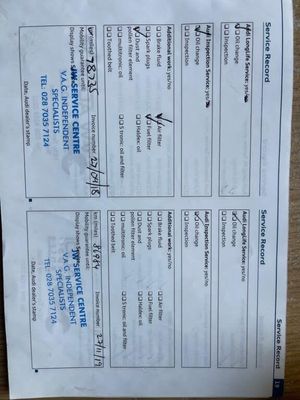 Service Record
Audi LongLife Service: yes/no
Oil change
Inspection
Audi Inspection Service: yes/no
Oil change
Inspection
Additional work: yes/no
Brake fluid
Air filter
Spark plugs
Fuel filter
Dust and
Haldex: oil
pollen filter element
multitronic: oil
S tronic: oil and filter
Toothed belt
km (miles)
Invoice number
27/04/18
Mobility guarantee until:
Display shows
JW SERVICE CENTRE
V.A.G. INDEPENDENT
SPECIALISTS
TEL: 028 7035 7124
Date, Audi dealer's stamp
Service Record
19
Service Record
Audi LongLife Service: yes/no
Oil change
Inspection
Audi Inspection Service: yes/no
Oil change
Inspection
Additional work: yes/no
Brake fluid
Air filter
Spark plugs
Fuel filter
Dust and
Haldex: oil
pollen filter element
multitronic: oil
S tronic: oil and filter
Toothed belt
km (miles)
Invoice number
27/11/19
Mobility guarantee until:
Display shows
JW SERVICE CENTRE
V.A.G. INDEPENDENT
SPECIALISTS
TEL: 028 7035 7124
Date, Audi dealer's stamp